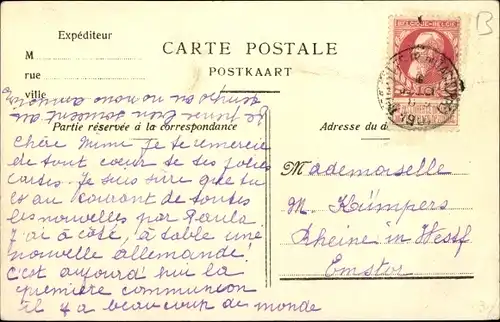 Expéditeur
M
rue
ville
CARTE POSTALE
POSTKAART
BELGIQUE-BELGIË
B
Partie réservée à la correspondance
Adresse du d
Chère Mimi Je te remercie
de tout coeur de tes jolies
cartes. Je suis sûre que tu
es au courant de toutes
les nouvelles par Paula
J'ai à côté, à table une
nouvelle allemande!
C'est aujourd'hui la
première communion
il y a beaucoup de monde
Mademoiselle
M. Kümpers
Rheine in Westf
Emstor